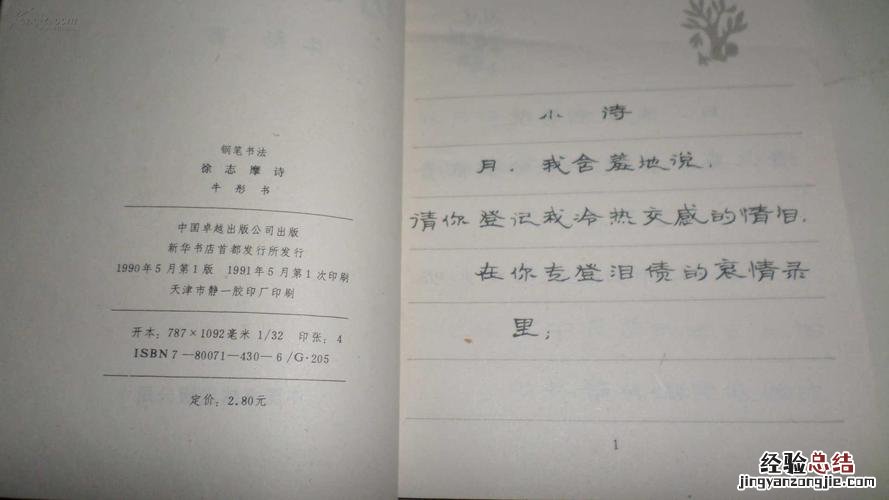 钢笔书法
徐志摩诗
牛彤书
中国卓越出版公司出版
新华书店首都发行所发行
1990年5月第1版 1991年5月第1次印刷
天津市静一胶印厂印刷
开本:787×1092毫米 1/32 印张:4
ISBN7—80071—430—6/G·205
定价:2.80元
小诗
月,我含羞地说,
请你登记我冷热交感的情泪,
在你专登泪债的哀情录
里;
1
经验总结
jingyanzongjie.com